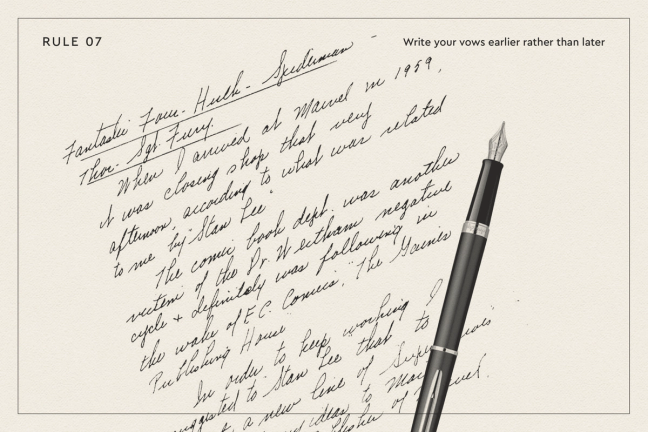 RULE 07
Write your vows earlier rather than later
Fantastic Four - Hulk - Spiderman -
Thor - Sgt. Fury.
When I arrived at Marvel in 1959,
it was closing shop that very
afternoon, according to what was related
to me by Stan Lee.
The comic book dept. was another
victim of the Dr. Wertham negative
cycle + definitely was following in
the wake of E.C. Comics, "The Gaines
Publishing House"
In order to keep working I
suggested to Stan Lee that to
a new line of
ideas to
of